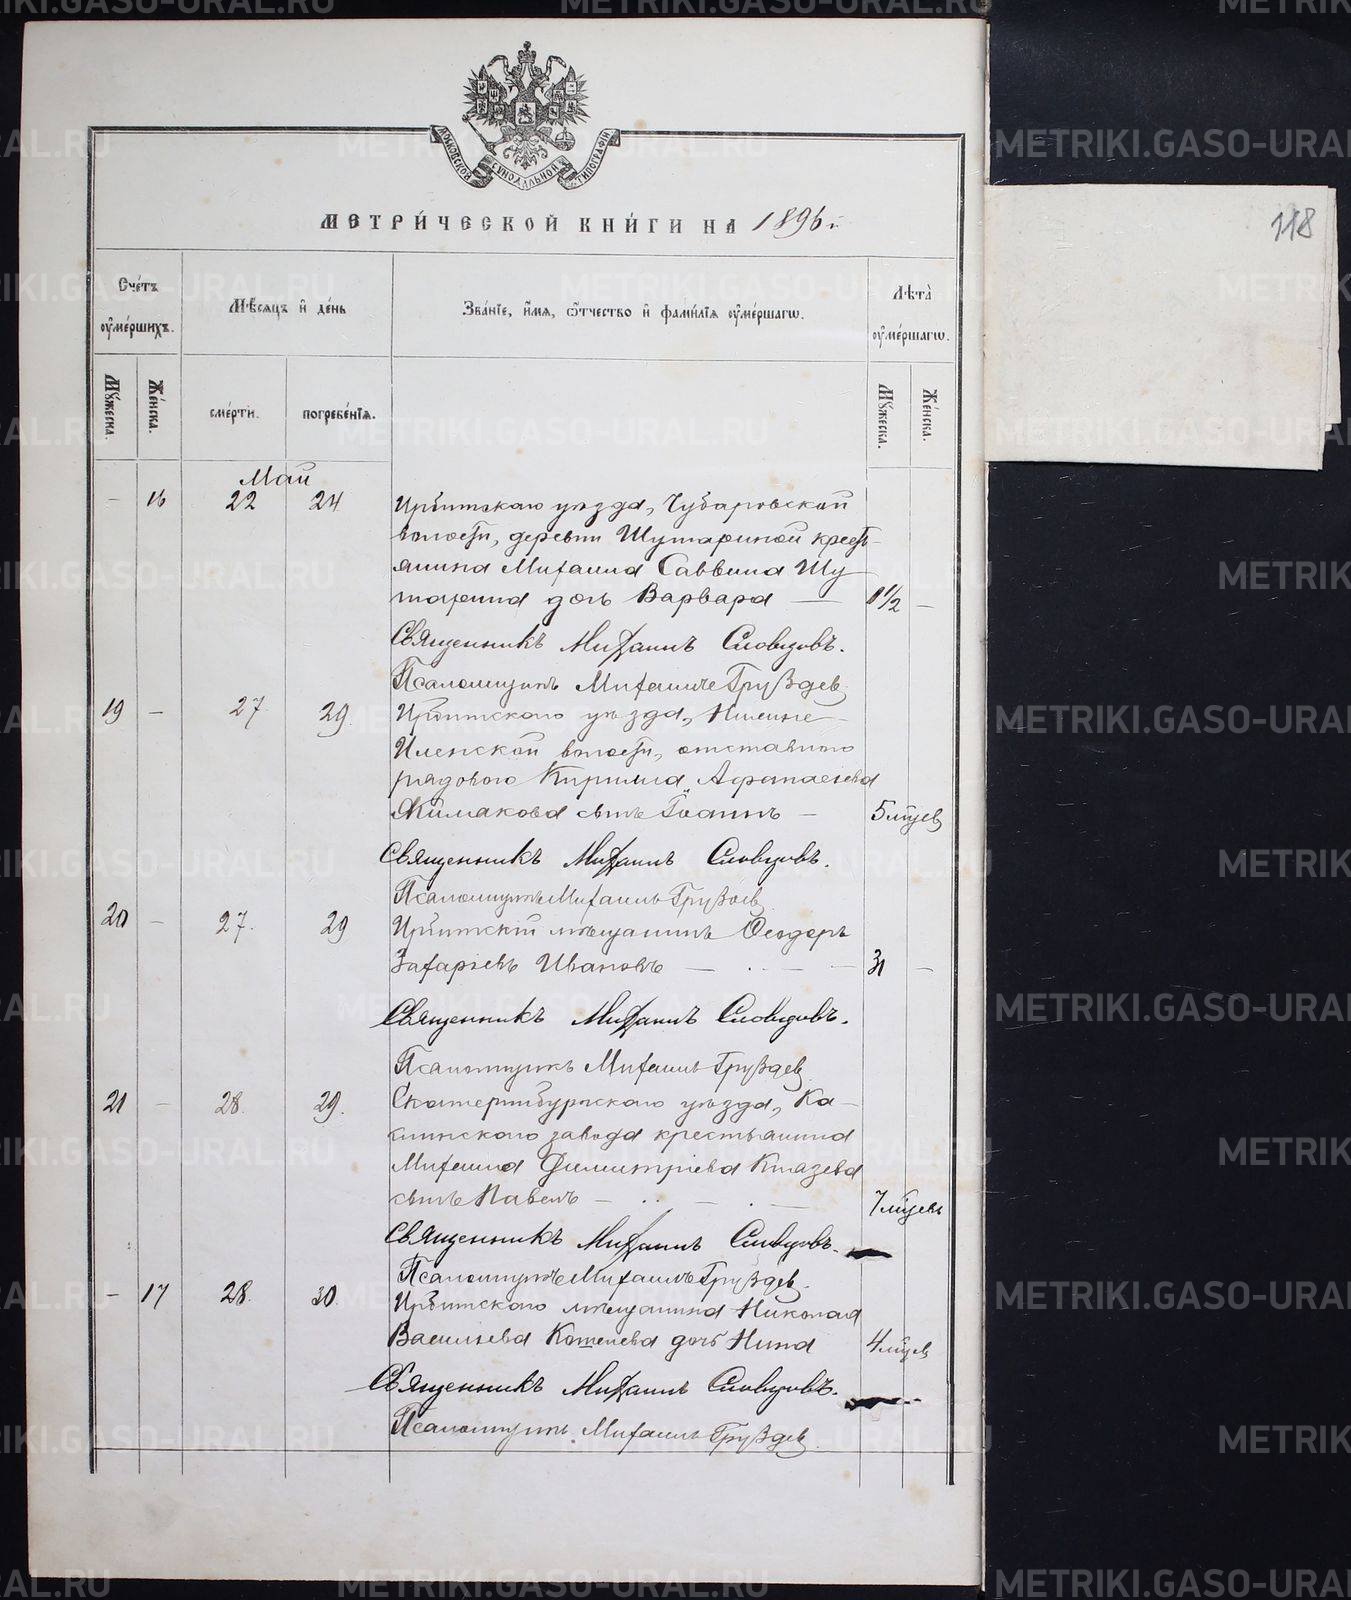 МОСКОВСКОЙ СѴНОДАЛЬНОЙ ТИПОГРАФІИ
МЕТРИ́ЧЕСКОЙ КНИ́ГИ НА 1896 г.
118
Сче́тъ ᲂу҆ме́ршихъ.
Мѣ́сяцъ и҆ де́нь
Зва́нїе, и҆́мя, ѻ҆́тчество и҆ фами́лїя ᲂу҆ме́ршагѡ.
Лѣта̀ ᲂу҆ме́ршагѡ.
Мꙋ́жеска.
Же́нска.
сме́рти.
погребе́нїя.
Мꙋ́жеска.
Же́нска.
Май
- 16 22 24 Ирбитскаго уѣзда, Чубаровской
волости, деревни Шутариной крест-
янина Михаила Саввина Шу-
тарина дочь Варвара — 1½ -
Священникъ Михаилъ Словцовъ.
Псаломщикъ Михаилъ Груздев
19 - 27 29. Ирбитского уѣзда, Нижне-
Иленской волости, отставного
рядового Кирилла Афанасьева
Жилакова сынъ Іоаннъ - 5 мѣсцев
Священникъ Михаилъ Словцовъ.
Псаломщикъ Михаилъ Груздев
20 - 27. 29 Ирбитскій мѣщанинъ Ѳеодоръ
Захаріевъ Ивановъ — 31 -
Священникъ Михаилъ Словцовъ.
Псаломщикъ Михаилъ Груздев
21 - 28. 29. Екатеринбургского уѣзда, Ка-
слинского завода крестьянина
Михаила Димитріева Князева
сынъ Павелъ — 7 мѣсцевъ
Священникъ Михаилъ Словцовъ.
Псаломщикъ Михаилъ Груздев.
- 17 28. 30. Ирбитского мѣщанина Николая
Васильева Кошелева дочь Нина 4 мѣсцев
Священникъ Михаилъ Словцовъ.
Псаломщикъ Михаилъ Груздев.
METRIKI.GASO-URAL.RU